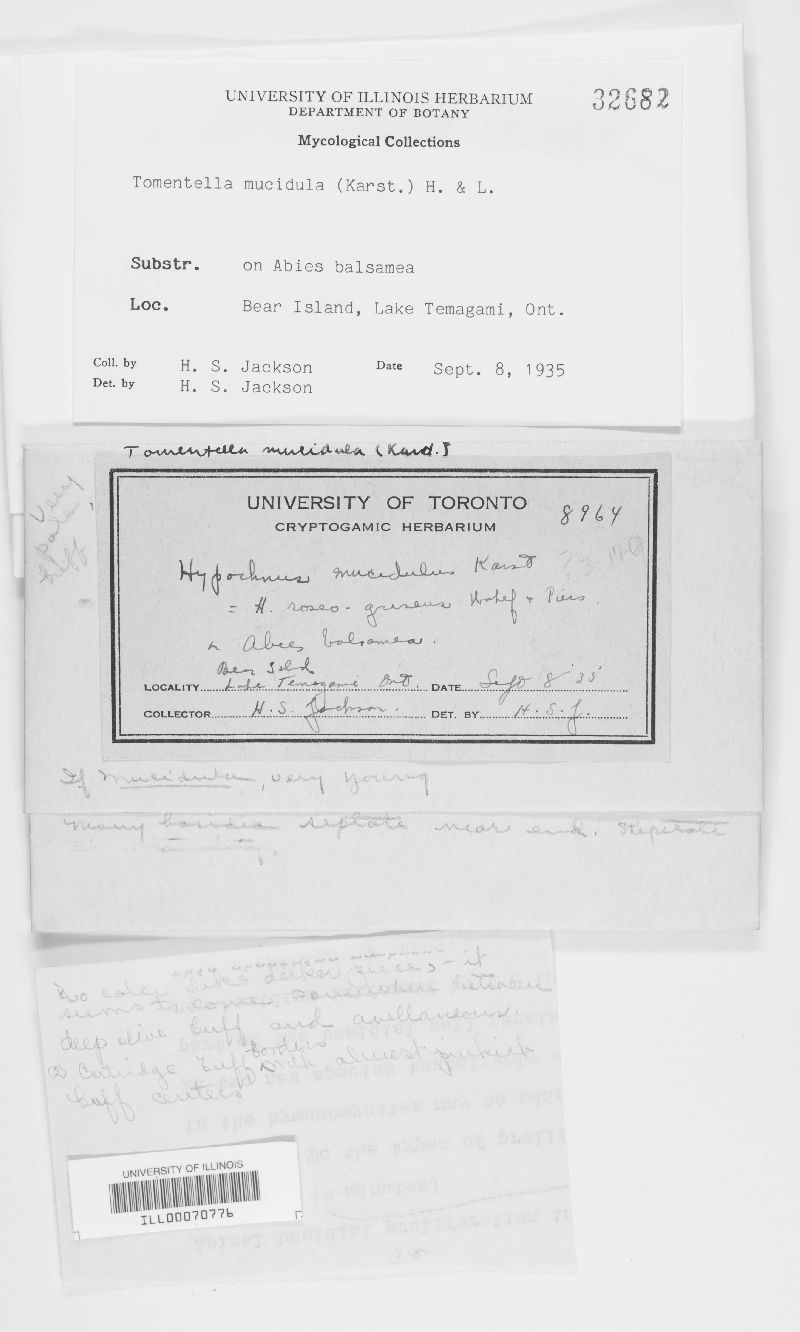 UNIVERSITY OF ILLINOIS HERBARIUM
32682
DEPARTMENT OF BOTANY
Mycological Collections
Tomentella mucidula (Karst.) H. & L.
Substr. on Abies balsamea
Loc. Bear Island, Lake Temagami, Ont.
Coll. by H. S. Jackson Date Sept. 8, 1935
Det. by H. S. Jackson
Tomentella mucidula (Karst.)
Very
pale
buff
UNIVERSITY OF TORONTO
8964
CRYPTOGAMIC HERBARIUM
Hypochnus mucidulus Karst
= H. roseo-griseus
Abies balsamea.
Bear Isld
LOCALITY Lake Temagami Ont. DATE Sept 8 '35
COLLECTOR H. S. Jackson. DET. BY H. S. J.
If mucidula, very young
many basidia septate near end.
No color like darker pieces - it
seems to come somewhere between
deep olive buff and avellaneous.
borders
(2) Cartridge buff with almost pinkish
buff centers
UNIVERSITY OF ILLINOIS
ILL00070776